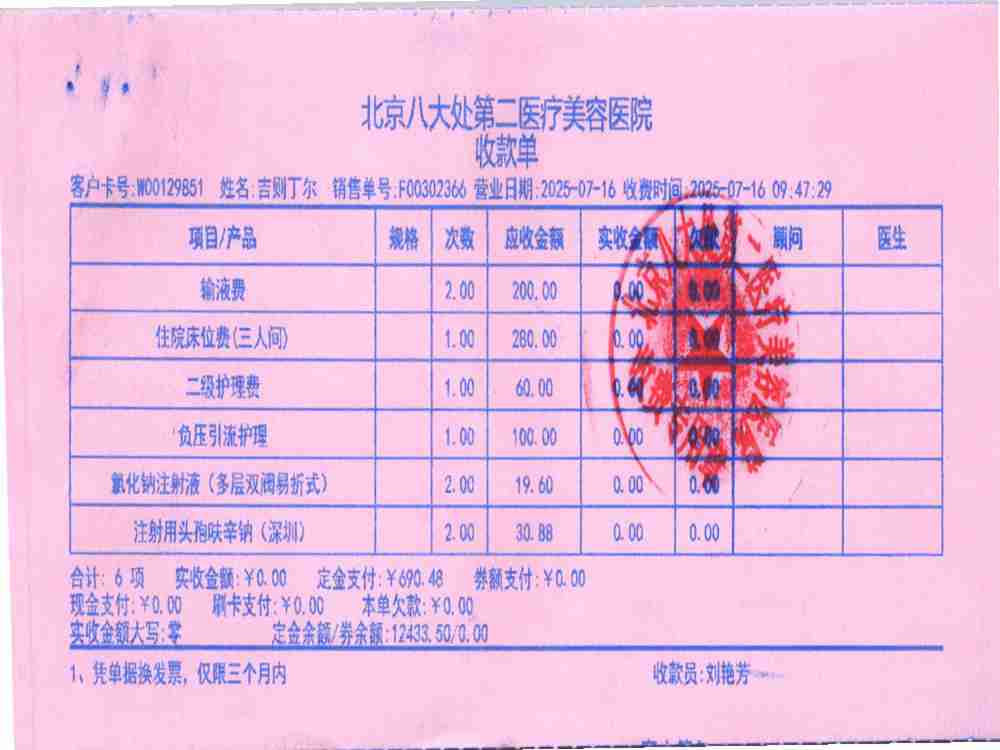 北京八大处第二医疗美容医院
收款单
客户卡号:W00129851 姓名:吉则丁尔 销售单号:F00302366 营业日期:2025-07-16 收费时间:2025-07-16 09:47:29
项目/产品 规格 次数 应收金额 实收金额 欠款 顾问 医生
输液费 2.00 200.00 0.00 0.00
住院床位费(三人间) 1.00 280.00 0.00 0.00
二级护理费 1.00 60.00 0.00 0.00
负压引流护理 1.00 100.00 0.00 0.00
氯化钠注射液（多层双阀易折式） 2.00 19.60 0.00 0.00
注射用头孢呋辛钠（深圳） 2.00 30.88 0.00 0.00
合计: 6 项 实收金额:￥0.00 定金支付:￥690.48 券额支付:￥0.00
现金支付:￥0.00 刷卡支付:￥0.00 本单欠款:￥0.00
实收金额大写:零 定金余额/券余额:12433.50/0.00
1、凭单据换发票，仅限三个月内 收款员:刘艳芳